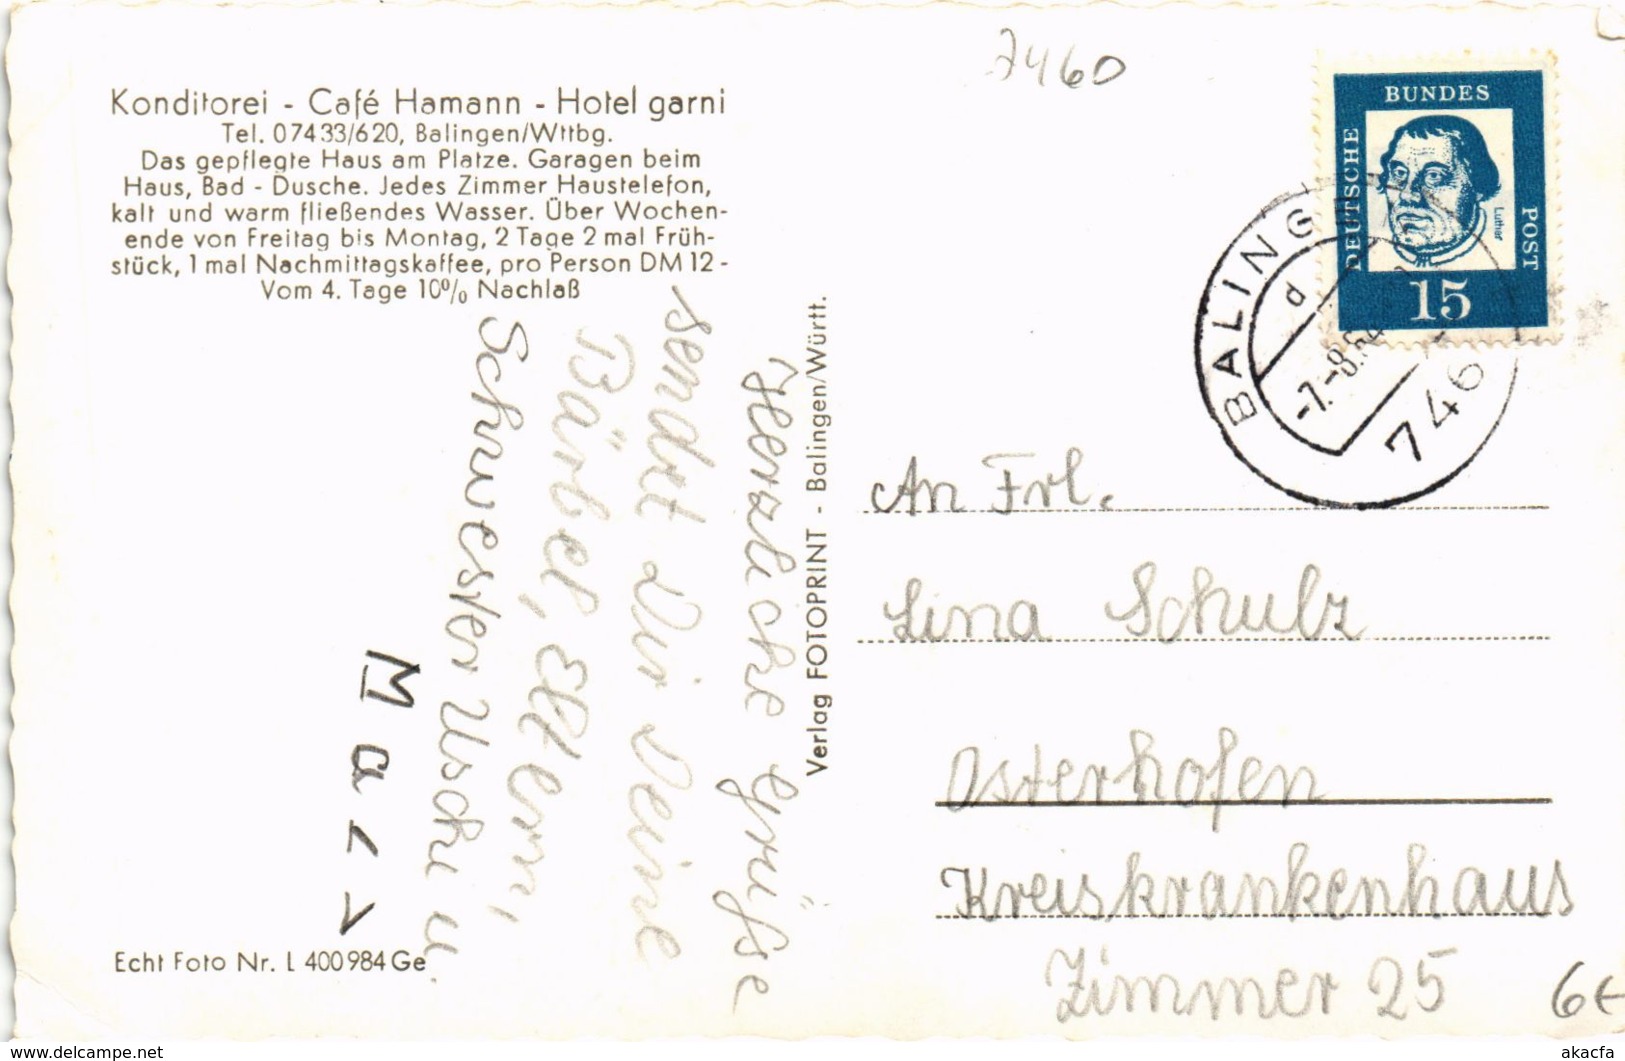 7460
Konditorei - Café Hamann - Hotel garni
Tel. 07433/620, Balingen/Wttbg.
Das gepflegte Haus am Platze. Garagen beim
Haus, Bad - Dusche. Jedes Zimmer Haustelefon,
kalt und warm fließendes Wasser. Über Wochen-
ende von Freitag bis Montag, 2 Tage 2 mal Früh-
stück, 1 mal Nachmittagskaffee, pro Person DM 12 -
Vom 4. Tage 10% Nachlaß
Herzliche Grüße
sendet Dir Deine
Bärbel, Eltern,
Schwester Uschi u.
Verlag FOTOPRINT - Balingen/Württ.
Echt Foto Nr. L 400984 Ge
DEUTSCHE
BUNDES
POST
Luther
15
BALINGEN
d
-7.-8.64
746
An Frl.
Lina Schulz
Osterhofen
Kreiskrankenhaus
Zimmer 25
6€
akacfa